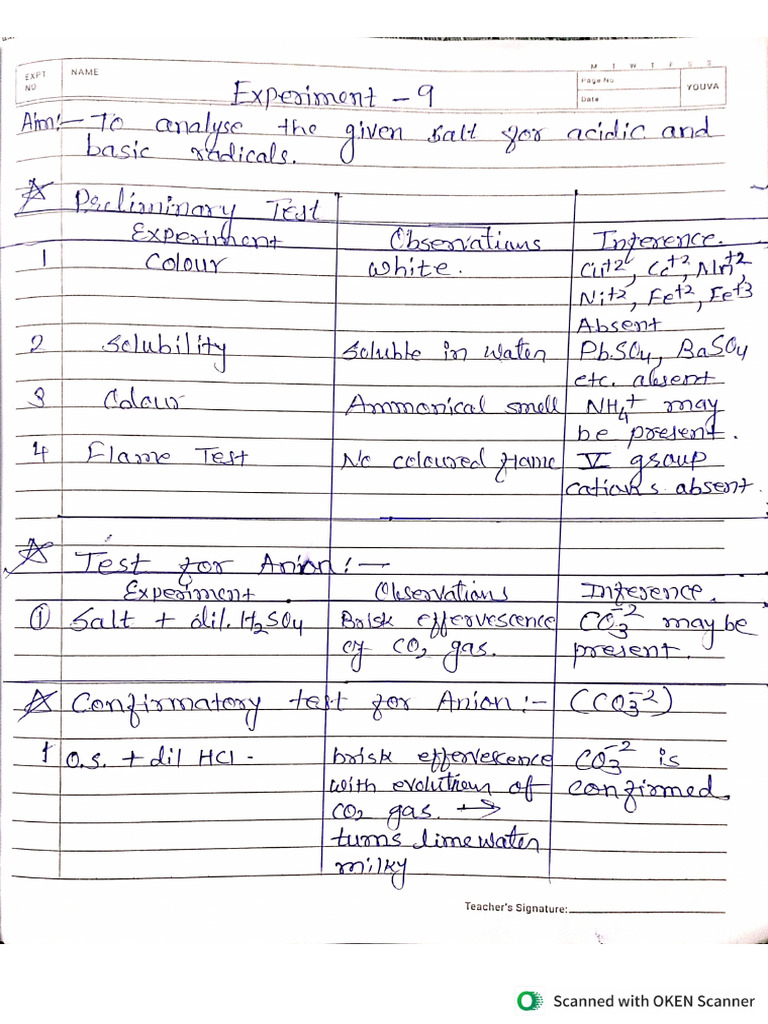 EXPT NO
NAME
M T W T F S S
Page No
Date
YOUVA
Experiment - 9
Aim:- To analyse the given salt for acidic and
basic radicals.
Preliminary Test
Experiment Observations Inference.
1 Colour White. Cu+2, Co+2, Mn+2,
Ni+2, Fe+2, Fe+3
Absent
2 Solubility Soluble in water PbSO4, BaSO4
etc. absent
3 Colour Ammonical smell NH4+ may
be present.
4 Flame Test No coloured flame V group
cations absent.
Test for Anion:-
Experiment Observations Inference.
① Salt + dil. H2SO4 Brisk effervescence CO3-2 may be
of CO2 gas. present.
Confirmatory test for Anion:- (CO3-2)
1 O.S. + dil HCl - brisk effervescence CO3-2 is
with evolution of confirmed.
CO2 gas. →
turns lime water
milky
Teacher's Signature:
Scanned with OKEN Scanner